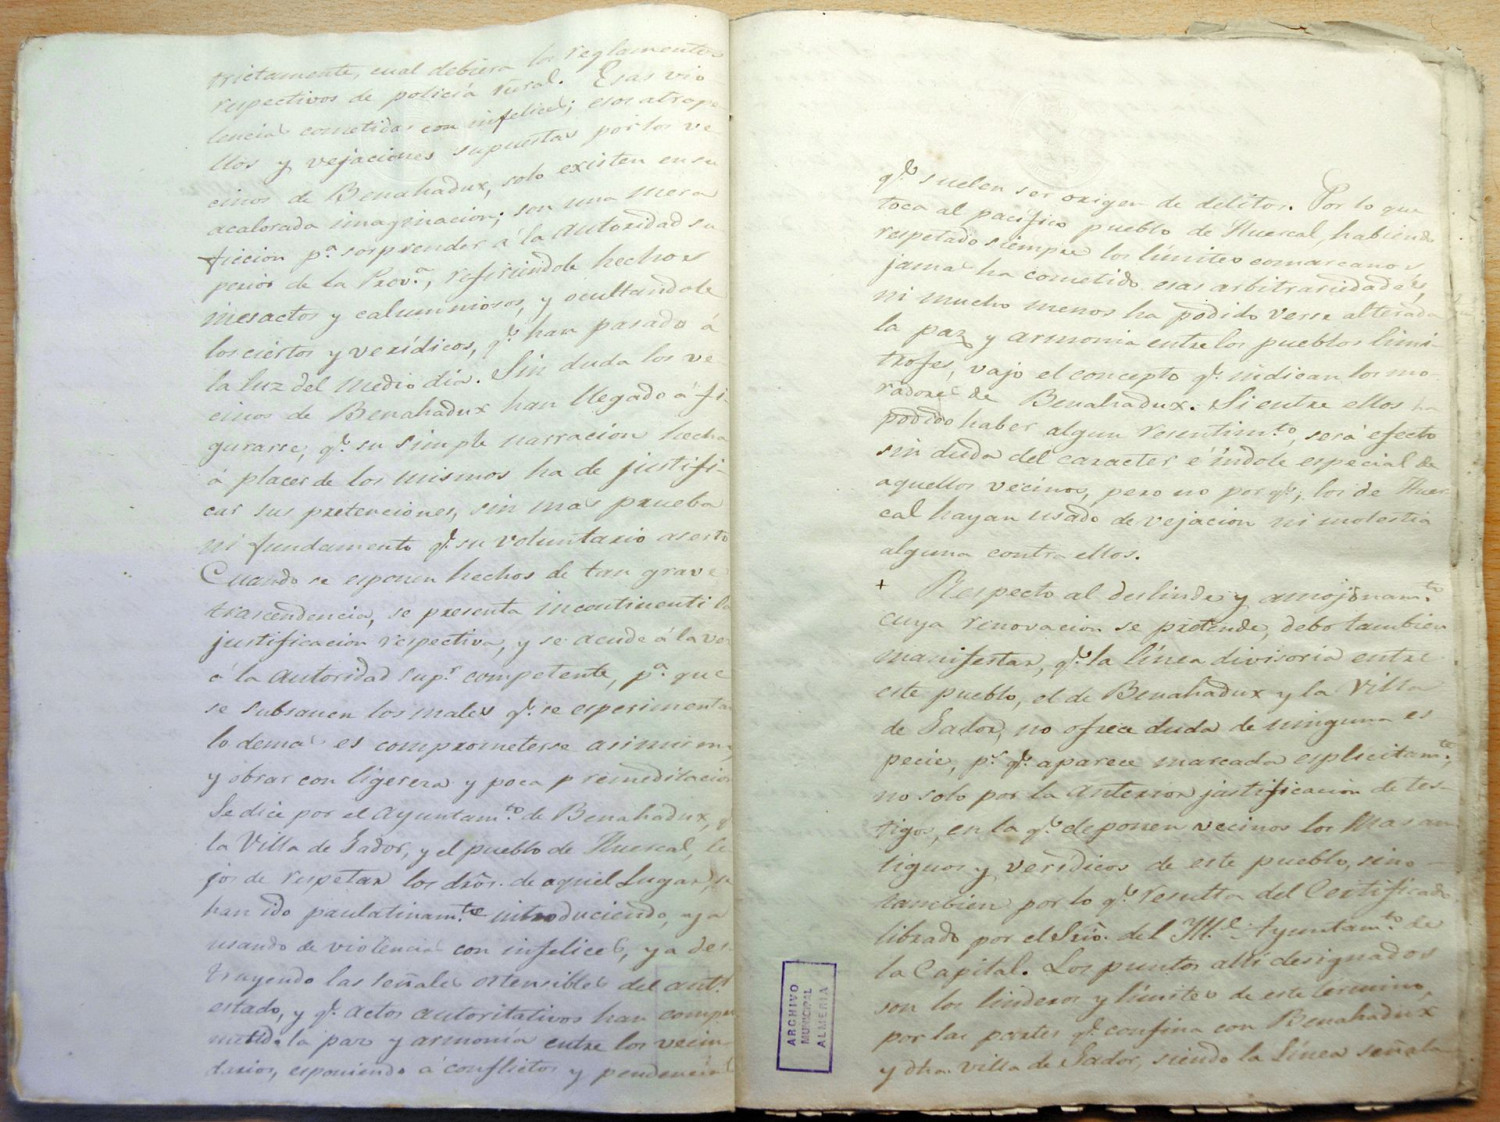 trictamente, cual debiera los reglamentos
respectivos de policía rural. Esas vio
lencias cometidas con infelices; esos atrope
llos y vejaciones supuestas por los ve-
cinos de Benahadux, solo existen en su
acalorada imaginacion; son una mera
ficcion p.ª sorprender á la autoridad su
perior de la Prov.ª, refiriendole hechos
inesactos y caluminiosos, y ocultandole
los ciertos y verídicos, q.e han pasado á
la luz del medio dia. Sin duda los ve
cinos de Benahadux han llegado á fi-
gurarse, q.e su simple narracion hecha
á placer de los mismos ha de justifi-
car sus pretenciones, sin mas prueba
ni fundamento q.e su voluntario aserto
Cuando se esponen hechos de tan grave
trascendencia, se presenta incontinenti la
justificacion respectiva, y se acude á la vez
á la autoridad sup.r competente, p.ª que
se subsanen los males q.e se esperimentan
lo demas es comprometerse asi mismo,
y obrar con ligereza y poca premeditacion
Se dice por el Ayuntam.to de Benahadux, q
la Villa de Gador, y el pueblo de Huercal, le
jos de respetar los dros. de aquel Lugar, se
han ido paulatinam.te introduciendo, ya
usando de violencias con infelices, ya des-
truyendo las señales ostensibles del ant.r
estado, y q.e actos autoritativos han compro
metido la paz y armonia entre los vecin-
darios, esponiendo á conflictos y pendencias
q.e suelen ser origen de delitos. Por lo que
toca al pacífico pueblo de Huercal, habiendo
respetado siempre los límites comarcanos
jamas ha cometido esas arbitrariedades,
ni mucho menos ha podido verse alterada
la paz y armonia entre los pueblos limi-
trofes, vajo el concepto q.e indican los mo-
radores de Benahadux. Si entre ellos ha
podido haber algun resentim.to, será efecto
sin duda del caracter é índole especial de
aquellos vecinos, pero no por q.e, los de Huer-
cal hayan usado de vejacion ni molestia
alguna contra ellos.
+ Respecto al deslinde y amojonam.to
cuya renovacion se pretende, debo tambien
manifestar, q.e la línea divisoria entre
este pueblo, el de Benahadux y la Villa
de Gador, no ofrece duda de ninguna es
pecie, p.r q.e aparece marcada esplicitam.te,
no solo por la anterior justificacion de tes-
tigos, en la q.e deponen vecinos los mas an
tiguos y verídicos de este pueblo, sino
tambien por lo q.e resulta del Certificado
librado por el Srio. del Ill.e Ayuntam.to de
la Capital. Los puntos allí designados
son los linderos y límites de este termino,
por las partes q.e confina con Benahadux
y dha. villa de Gador, siendo la Línea señala
ARCHIVO
MUNICIPAL
ALMERIA